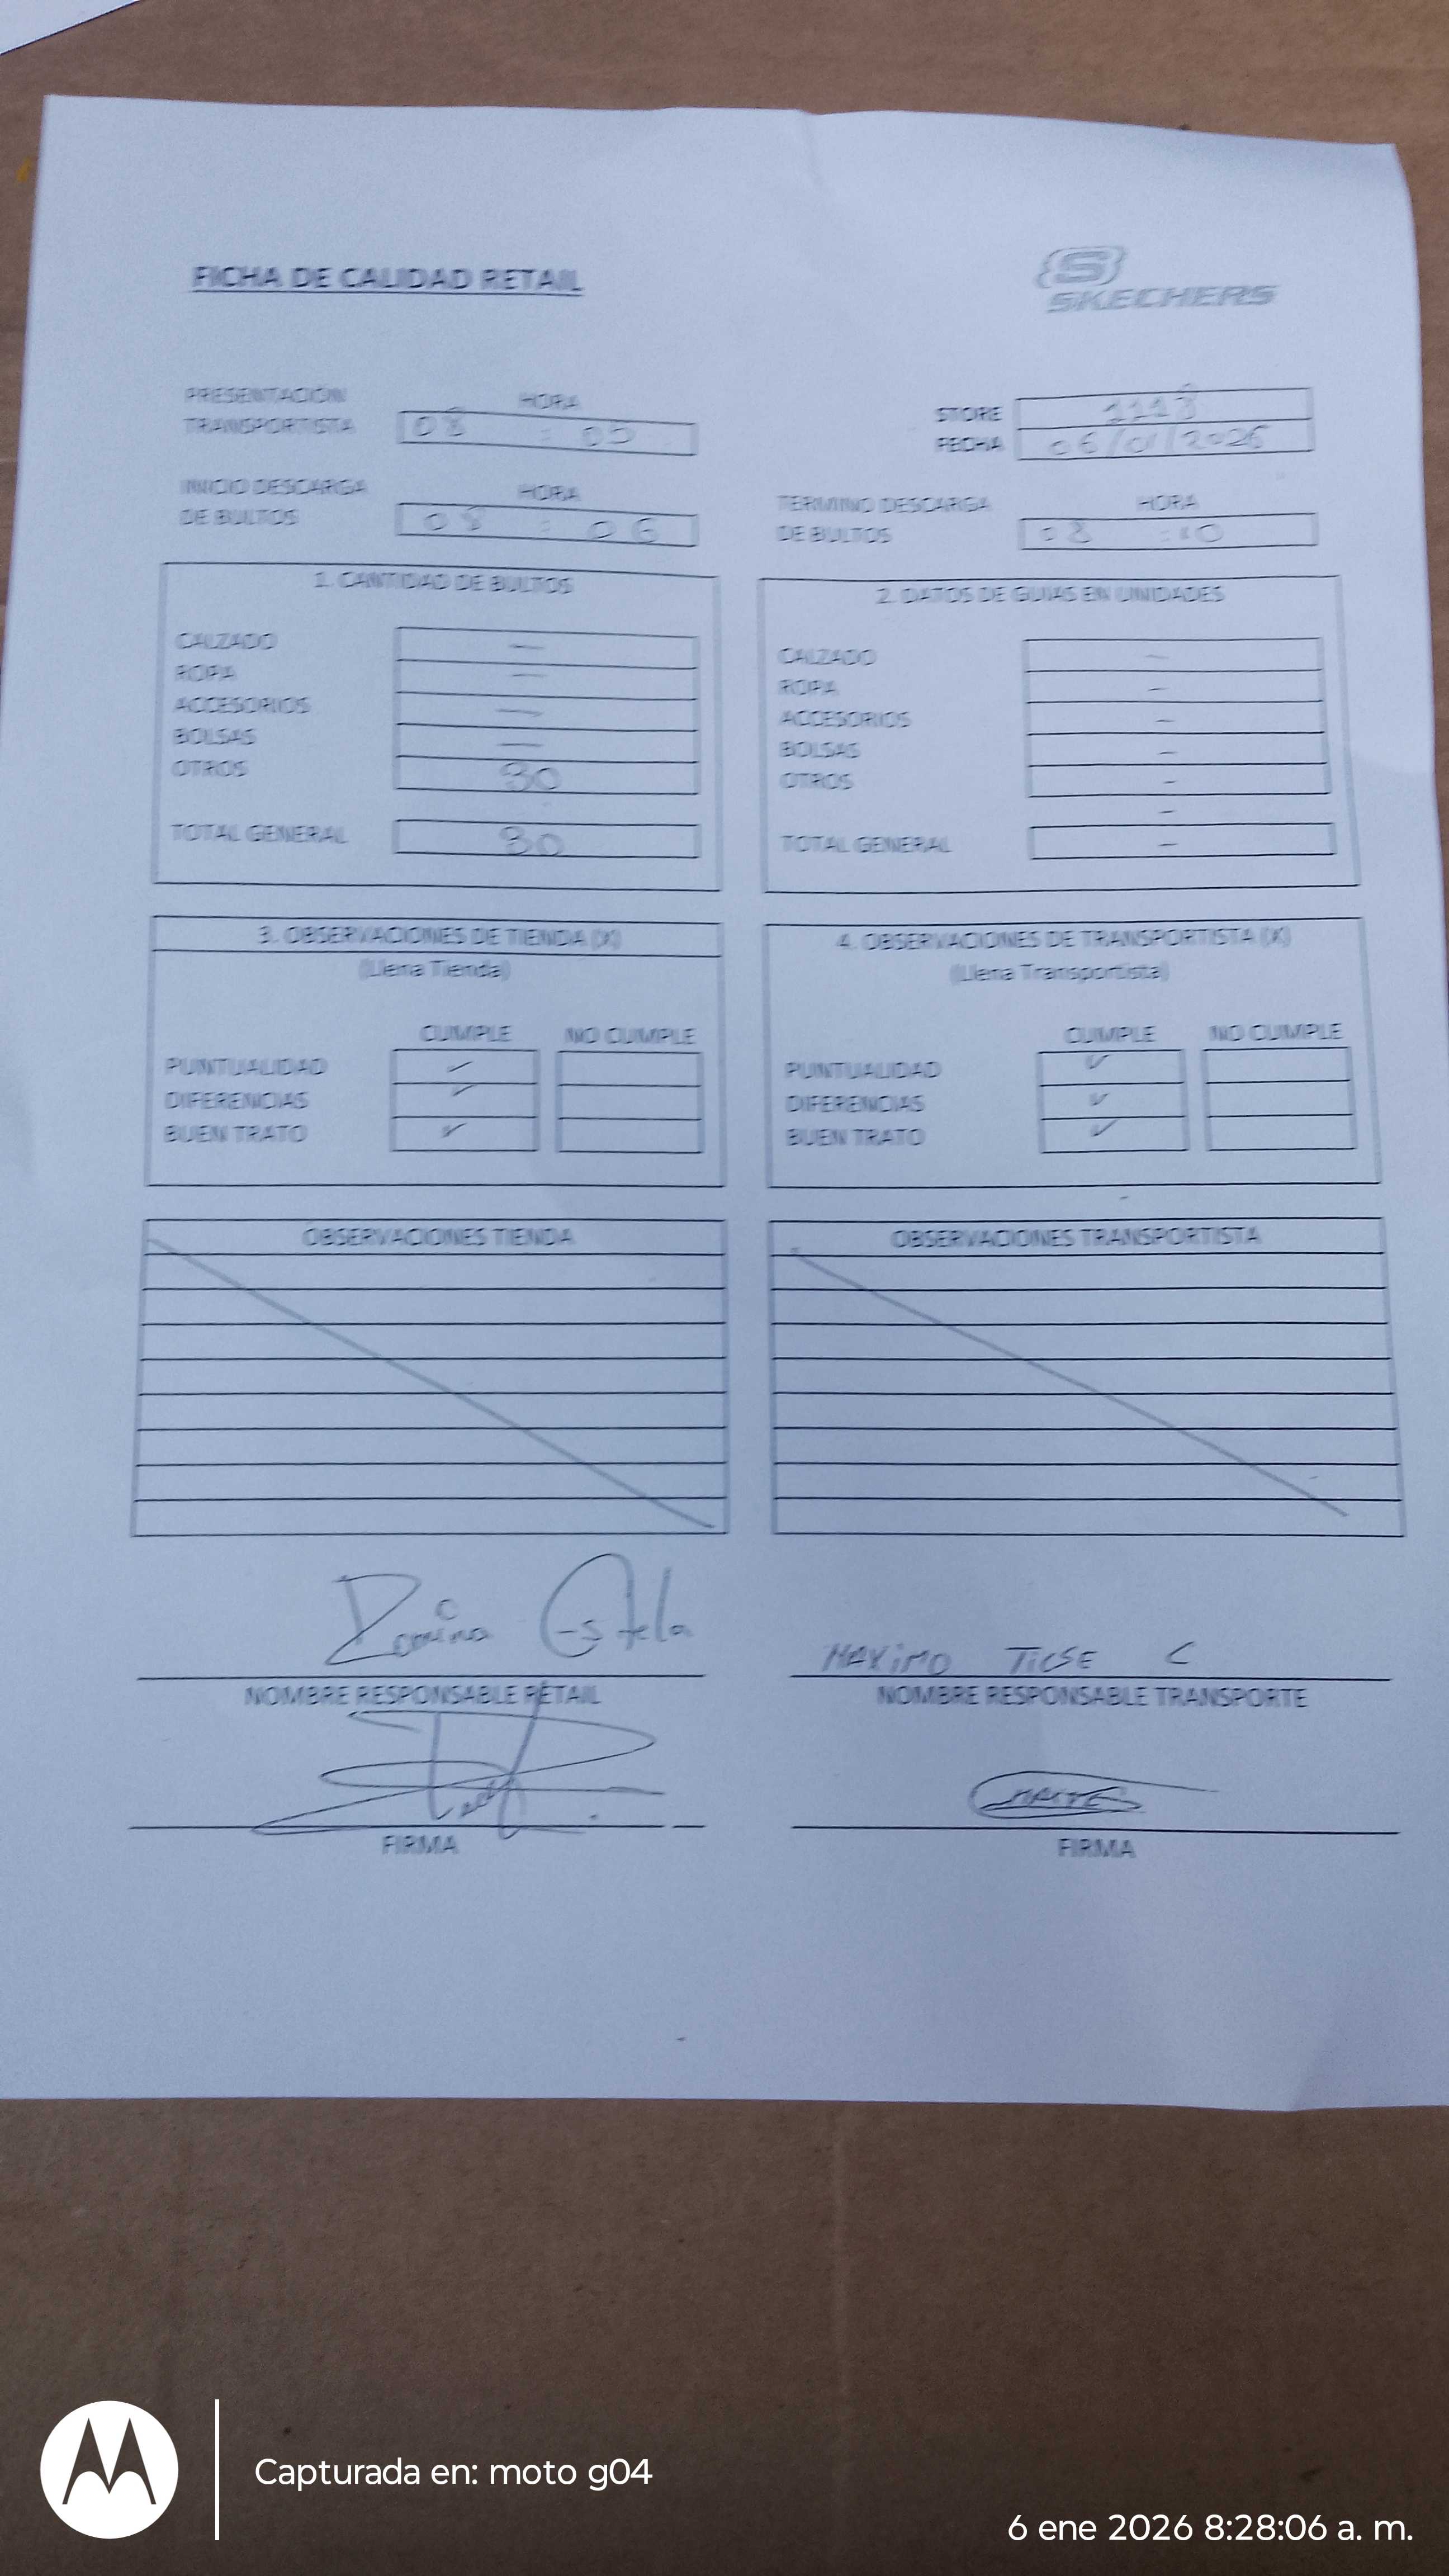 FICHA DE CALIDAD RETAIL
S
SKECHERS
PRESENTACIÓN HORA
TRANSPORTISTA 08 : 05
STORE 1118
FECHA 06/01/2026
INICIO DESCARGA HORA
DE BULTOS 08 : 06
TERMINO DESCARGA HORA
DE BULTOS 08 :10
1. CANTIDAD DE BULTOS
CALZADO —
ROPA —
ACCESORIOS —
BOLSAS —
OTROS 30
TOTAL GENERAL 30
2. DATOS DE GUIAS EN UNIDADES
CALZADO -
ROPA -
ACCESORIOS -
BOLSAS -
OTROS -
-
TOTAL GENERAL -
3. OBSERVACIONES DE TIENDA (X)
(Llena Tienda)
CUMPLE NO CUMPLE
PUNTUALIDAD ✓
DIFERENCIAS ✓
BUEN TRATO ✓
4. OBSERVACIONES DE TRANSPORTISTA (X)
(Llena Transportista)
CUMPLE NO CUMPLE
PUNTUALIDAD ✓
DIFERENCIAS ✓
BUEN TRATO ✓
OBSERVACIONES TIENDA
OBSERVACIONES TRANSPORTISTA
Estela
NOMBRE RESPONSABLE RETAIL
FIRMA
MAXIMO TICSE C
NOMBRE RESPONSABLE TRANSPORTE
FIRMA
Capturada en: moto g04
6 ene 2026 8:28:06 a. m.